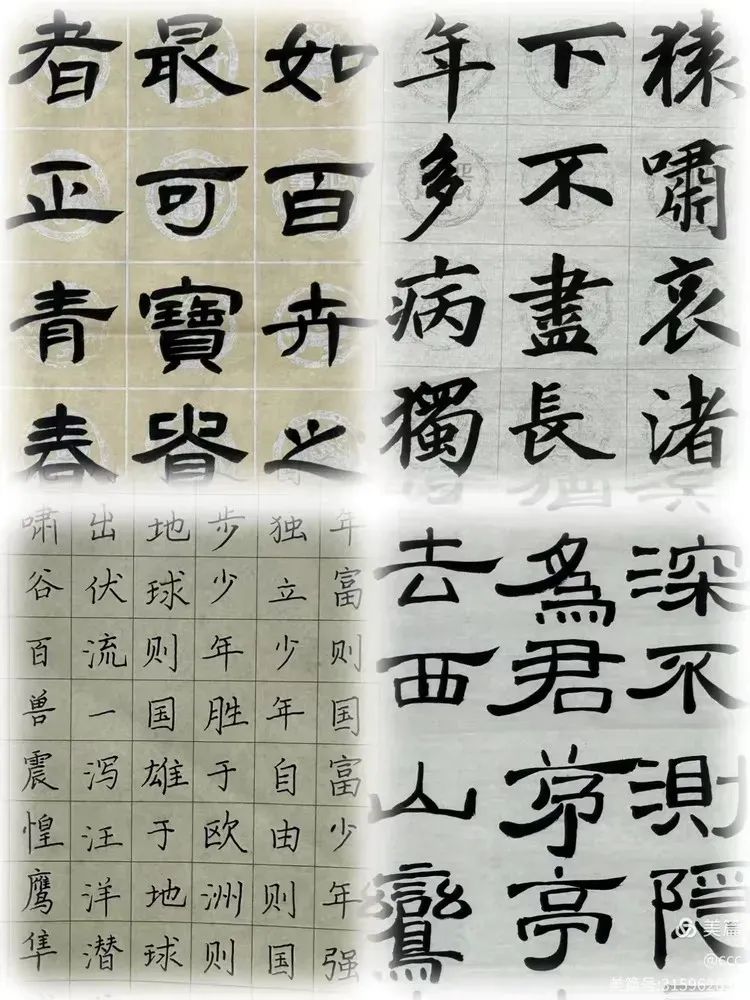 如百卉之
最可寶貴
者正青春
猿嘯哀渚
下不盡長
年多病獨
年富则国富少年强
独立少年自由则国
步少年胜于欧洲则
地球则国雄于地球
出伏流一泻汪洋潜
啸谷百兽震惶鹰隼
深不測隱
為君茅亭
去西山鸞
美篇
@ccc
美篇号: